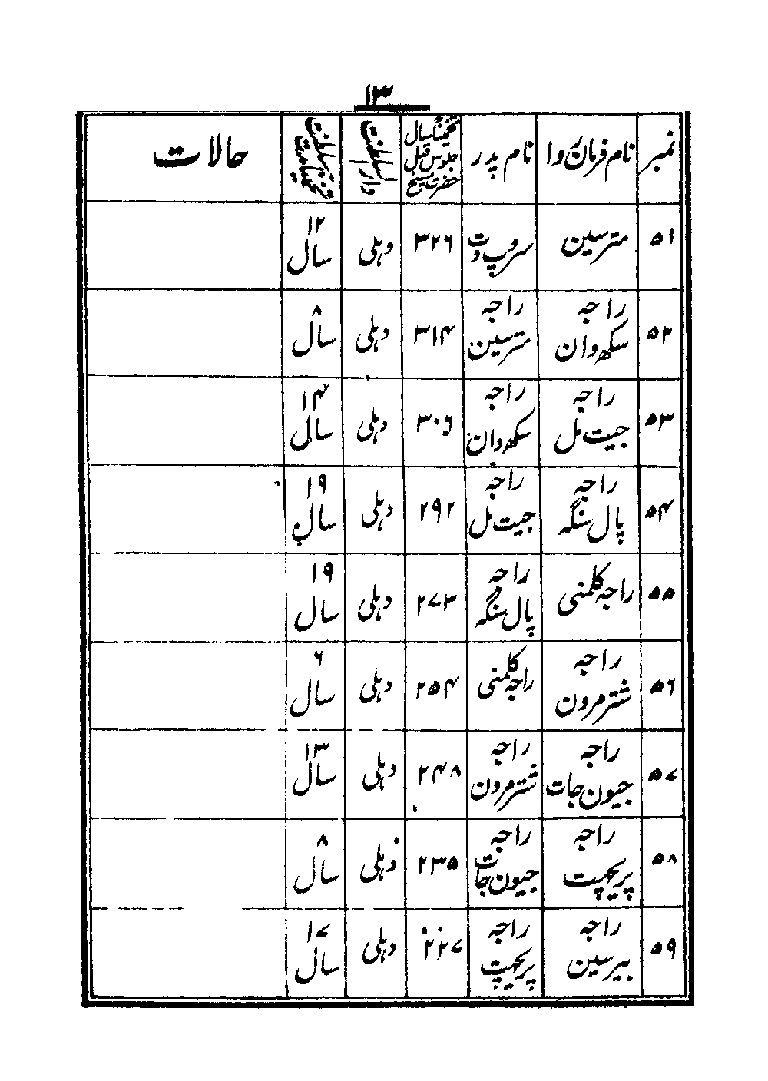 ۱۳
نمبر | نام فرمان روا | نام پدر | تخمیناً سال جلوس قبل حضرت مسیح | دار السلطنت | سلطنت | حالات
۵۱ | مترسین | سروپ دت | ۳۲۶ | دہلی | ۱۲ سال
۵۲ | راجہ سکھ وان | راجہ مترسین | ۳۱۴ | دہلی | ۸ سال
۵۳ | راجہ جیت مل | راجہ سکھ وان | ۳۰۶ | دہلی | ۱۴ سال
۵۴ | راجہ پال سنگہ | راجہ جیت مل | ۲۹۲ | دہلی | ۱۹ سال
۵۵ | راجہ کلمنی | راجہ پال سنگہ | ۲۷۳ | دہلی | ۱۹ سال
۵۶ | راجہ شترمرون | راجہ کلمنی | ۲۵۴ | دہلی | ۶ سال
۵۷ | راجہ جیون جات | راجہ شترمرون | ۲۴۸ | دہلی | ۱۳ سال
۵۸ | راجہ پریچھت | راجہ جیون جات | ۲۳۵ | دہلی | ۸ سال
۵۹ | راجہ بیرسین | راجہ پریچھت | ۲۲۷ | دہلی | ۱۷ سال